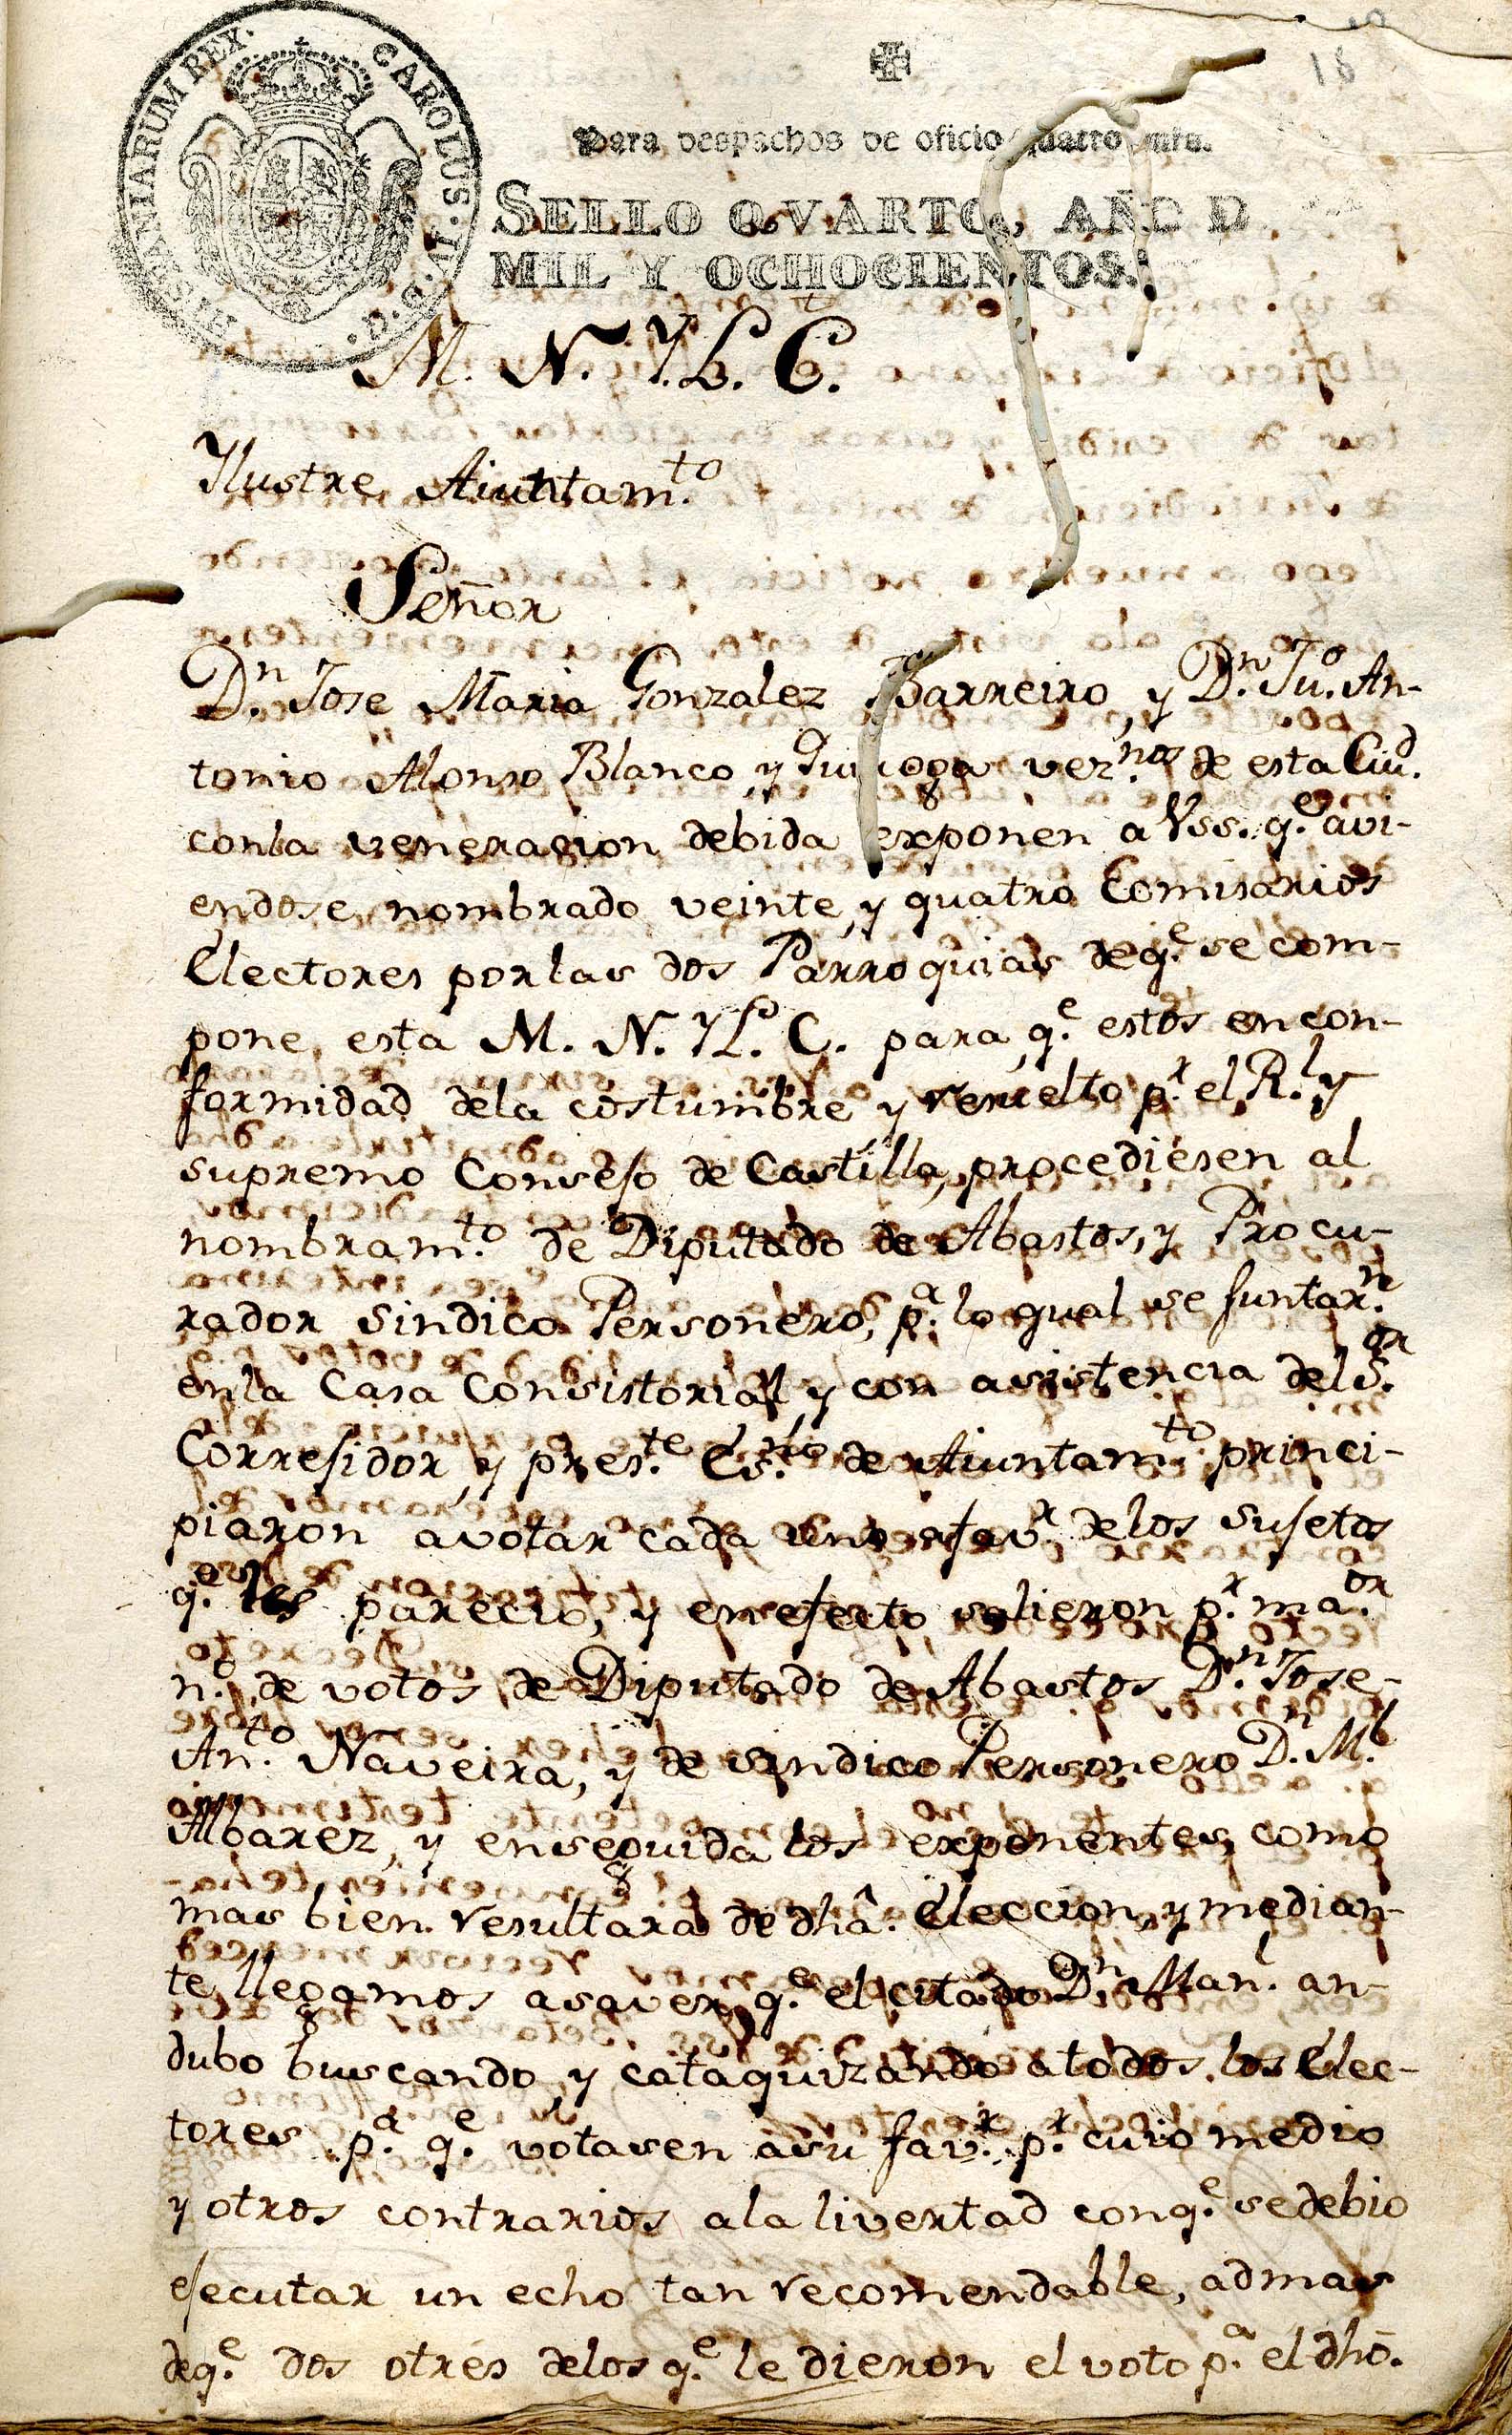 HISPANIARUM REX. CAROLUS. IV. D. G.
18
Para despachos de oficio quatro mrs.
SELLO QVARTO, AÑO D
MIL Y OCHOCIENTOS.
M. N. Y L. C.
Ylustre Aiuntam.to
Señor
D.n Jose Maria Gonzalez Barreiro, y D.n Ju.o An-
tonio Alonso Blanco, y Quiroga vez.nos de esta Ciu.d
conla veneracion debida exponen a Vss. q.e avi-
endose nombrado veinte, y quatro Comisarios
Electores por las dos Parroquias de q.e se com-
pone esta M. N. Y L. C. para q.e estos en con-
formidad dela costumbre y resuelto p.r el R.l y
supremo Consejo de Castilla, procediesen al
nombram.to de Diputado de Abastos, y Procu-
rador Sindico Personero, p.a lo qual se juntar.n
enla Casa Consistorial, y con asistencia del S.or
Corregidor, y pres.te Es.no de Aiuntam.to princi-
piaron avotar cada uno afav.r delos sujetos
q.e les parecio, y en efecto salieron p.r ma.or
n.o de votos de Diputado de Abastos D.n Jose-
An.to Naveira, y de sindico Personero D.n M.l
Albarez, y enseguida los exponentes, como
mas bien resultara de dhâ. Eleccion, y median-
te llegamos asaver q.e el citado D.n Man.l an-
dubo buscando, y cataquizando atodos los Elec-
tores p.a q.e votasen asu fav.r p.r cuio medio
y otros contrarios ala livertad conq.e se debio
ejecutar un echo tan recomendable, admas
deq.e dos otres delos q.e le dieron el voto p.a el dhô.